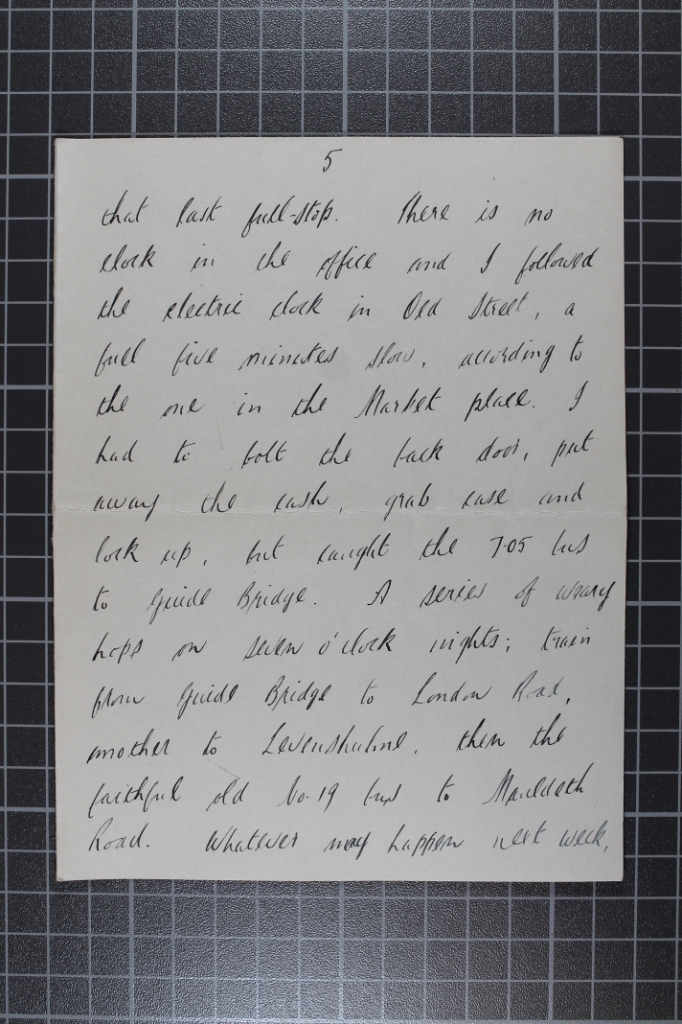 5
that last full-stop. There is no
clock in the office and I followed
the electric clock in Old Street, a
full five minutes slow, according to
the one in the Market place. I
had to bolt the back door, put
away the cash, grab case and
lock up, but caught the 7.05 bus
to Guide Bridge. A series of weary
hops on seven o'clock nights; train
from Guide Bridge to London Road,
another to Levenshulme, then the
faithful old No. 19 bus to Mauldeth
Road. Whatever may happen next week,